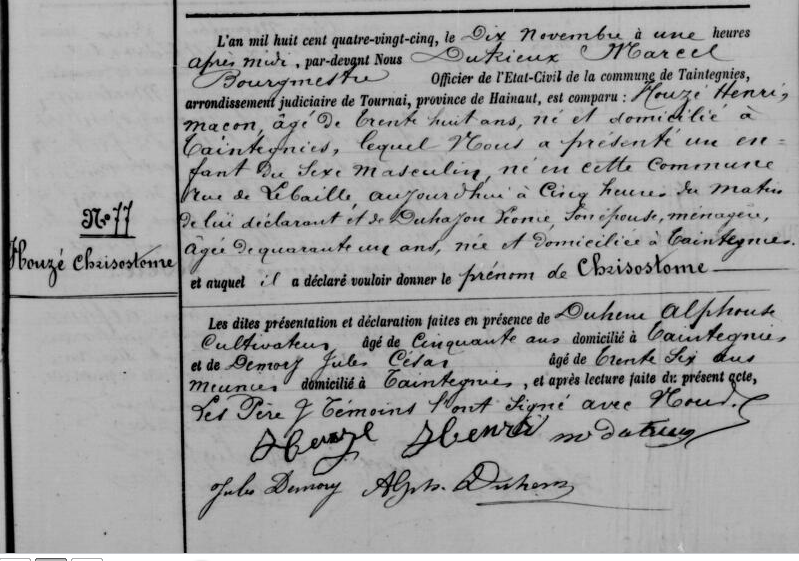 L'an mil huit cent quatre-vingt-cinq, le Dix Novembre à une heures
après midi, par-devant Nous Dutrieux Marcel
Bourgmestre Officier de l'Etat-Civil de la commune de Taintegnies,
arrondissement judiciaire de Tournai, province de Hainaut, est comparu : Houzé Henri,
maçon, âgé de trente huit ans, né et domicilié à
Taintegnies, lequel Nous a présenté un en=
fant du Sexe Masculin, né en cette Commune
rue de Lebaille, aujourd'hui à Cinq heures du matin
de lui déclarant et de Duhajon Léonie Son épouse, ménagère,
âgée de quarante un ans, née et domiciliée à Taintegnies.
et auquel il a déclaré vouloir donner le prénom de Chrisostome
N° 77
Houzé Chrisostome
Les dites présentation et déclaration faites en présence de Duhem Alphonse
Cultivateur, âgé de Cinquante ans domicilié à Taintegnies
et de Demory Jules César âgé de trente Six ans
meunier domicilié à Taintegnies, et après lecture faite du présent acte,
Les Père & Témoins l'ont Signé avec Nous.
Houzé Henri
Jules Demory Alph. Duhem